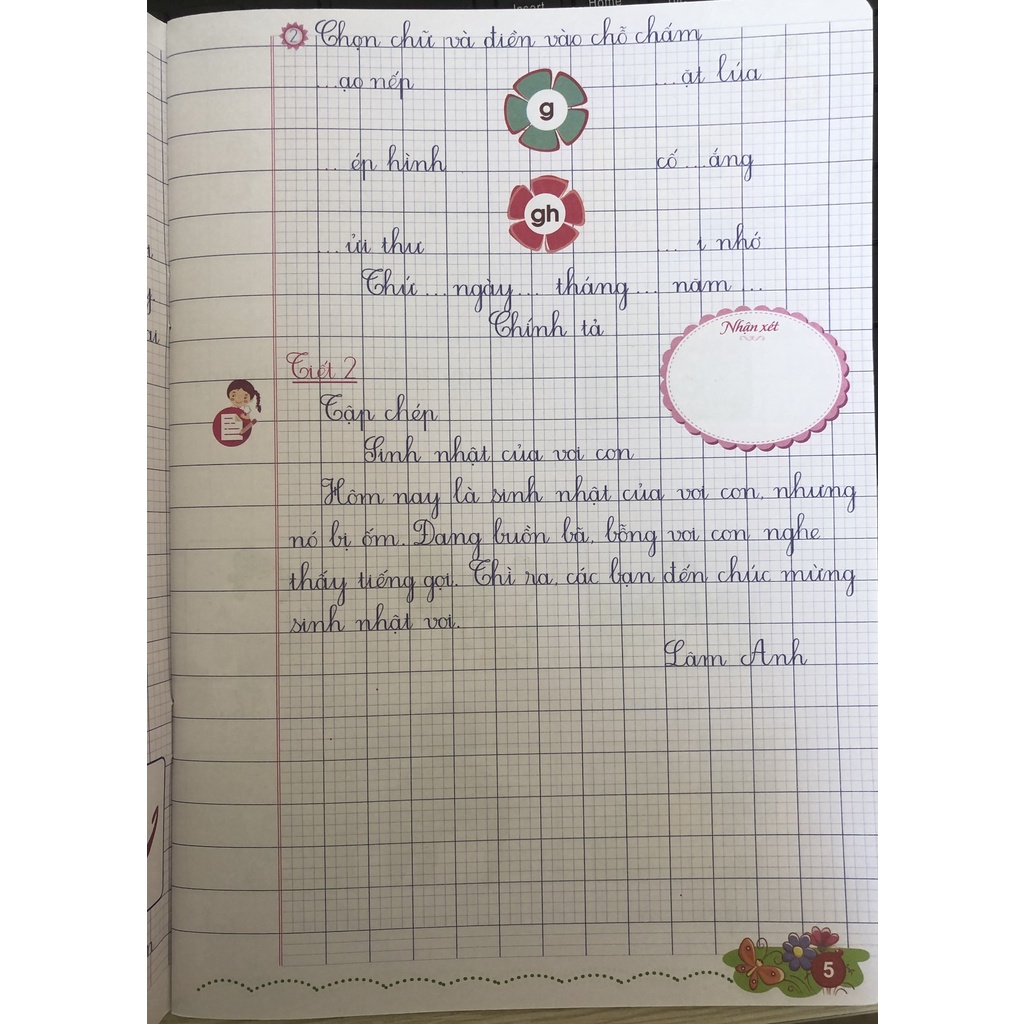 2 Chọn chữ và điền vào chỗ chấm
...ạo nếp ...ặt lúa
g
...ép hình cố...ắng
gh
...ửi thư ...i nhớ
Thứ...ngày...tháng...năm...
Chính tả
Nhận xét
Tiết 2
Tập chép
Sinh nhật của voi con
Hôm nay là sinh nhật của voi con, nhưng
nó bị ốm. Đang buồn bã, bỗng voi con nghe
thấy tiếng gọi. Thì ra, các bạn đến chúc mừng
sinh nhật voi.
Lâm Anh
5